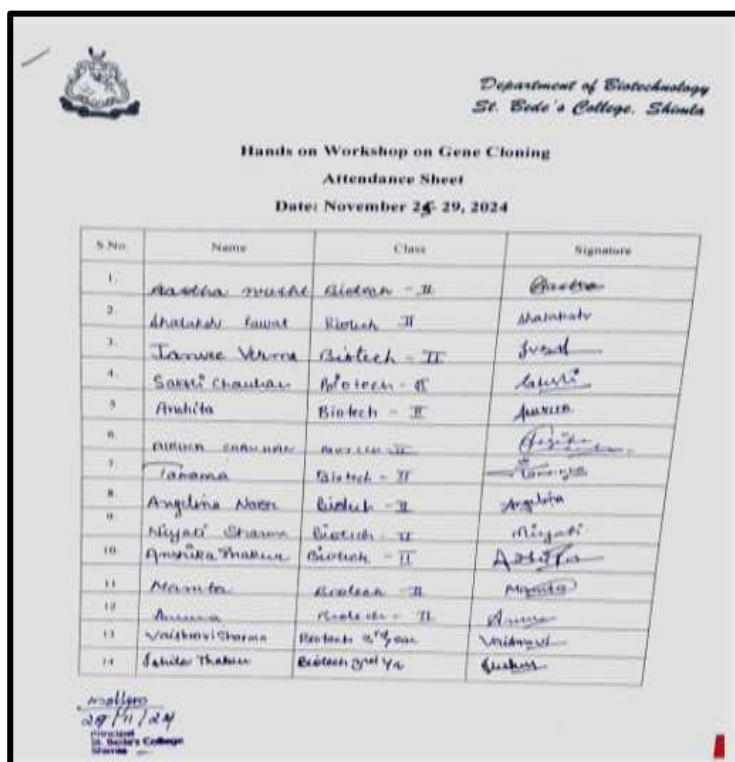 Department of Biotechnology
St. Bede's College, Shimla
Hands on Workshop on Gene Cloning
Attendance Sheet
Date: November 25-29, 2024
S.No. Name Class Signature
1. Aastha Biotech - II Aastha
2. Shalakshi Rawat Biotech II
3. Janvee Verma Biotech - II
4. Sakshi Chauhan Biotech - II Sakshi
5 Anshita Biotech - II
6. CHAUHAN BIOTECH - II
7. Tamanna Biotech - II
8. Angelina Biotech - II Angelina
9. Niyati Sharma Biotech - II Niyati
10. Anshika Thakur Biotech - II
11 Mamta Biotech - II Mamta
12 Biotech - II
13 Vaishnavi Sharma Biotech 3rd year Vaishnavi
14 Thakur Biotech 3rd Yr
29/11/24
Principal
St. Bede's College
Shimla